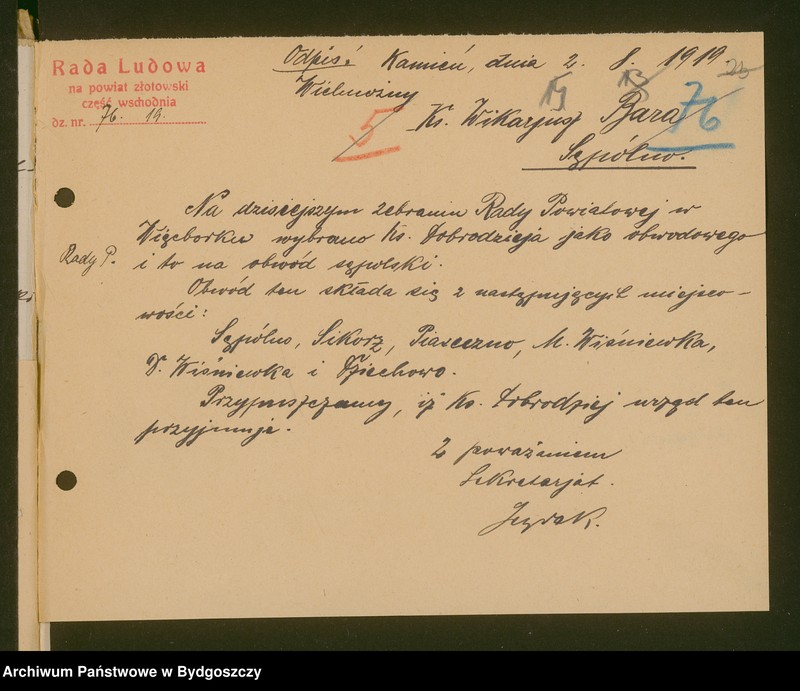 Rada Ludowa
na powiat złotowski
część wschodnia
dz. nr. 76. 19.
Odpis: Kamień, dnia 2. 8. 1919
Wielmożny
Ks. Wikarjusz Bara
Sępólno.
5
76
Na dzisiejszym zebraniu Rady Powiatowej w
Więcborku wybrano Ks. Dobrodzieja jako obwodowego
Rady P.
i to na obwód sępolski.
Obwód ten składa się z następujących miejsco-
wości:
Sępólno, Sikorz, Piaseczno, M. Wiśniewka,
D. Wiśniewka i Dziechowo.
Przypuszczamy, iż Ks. Dobrodziej urząd ten
przyjmuje.
Z poważaniem
Sekretarjat.
Archiwum Państwowe w Bydgoszczy